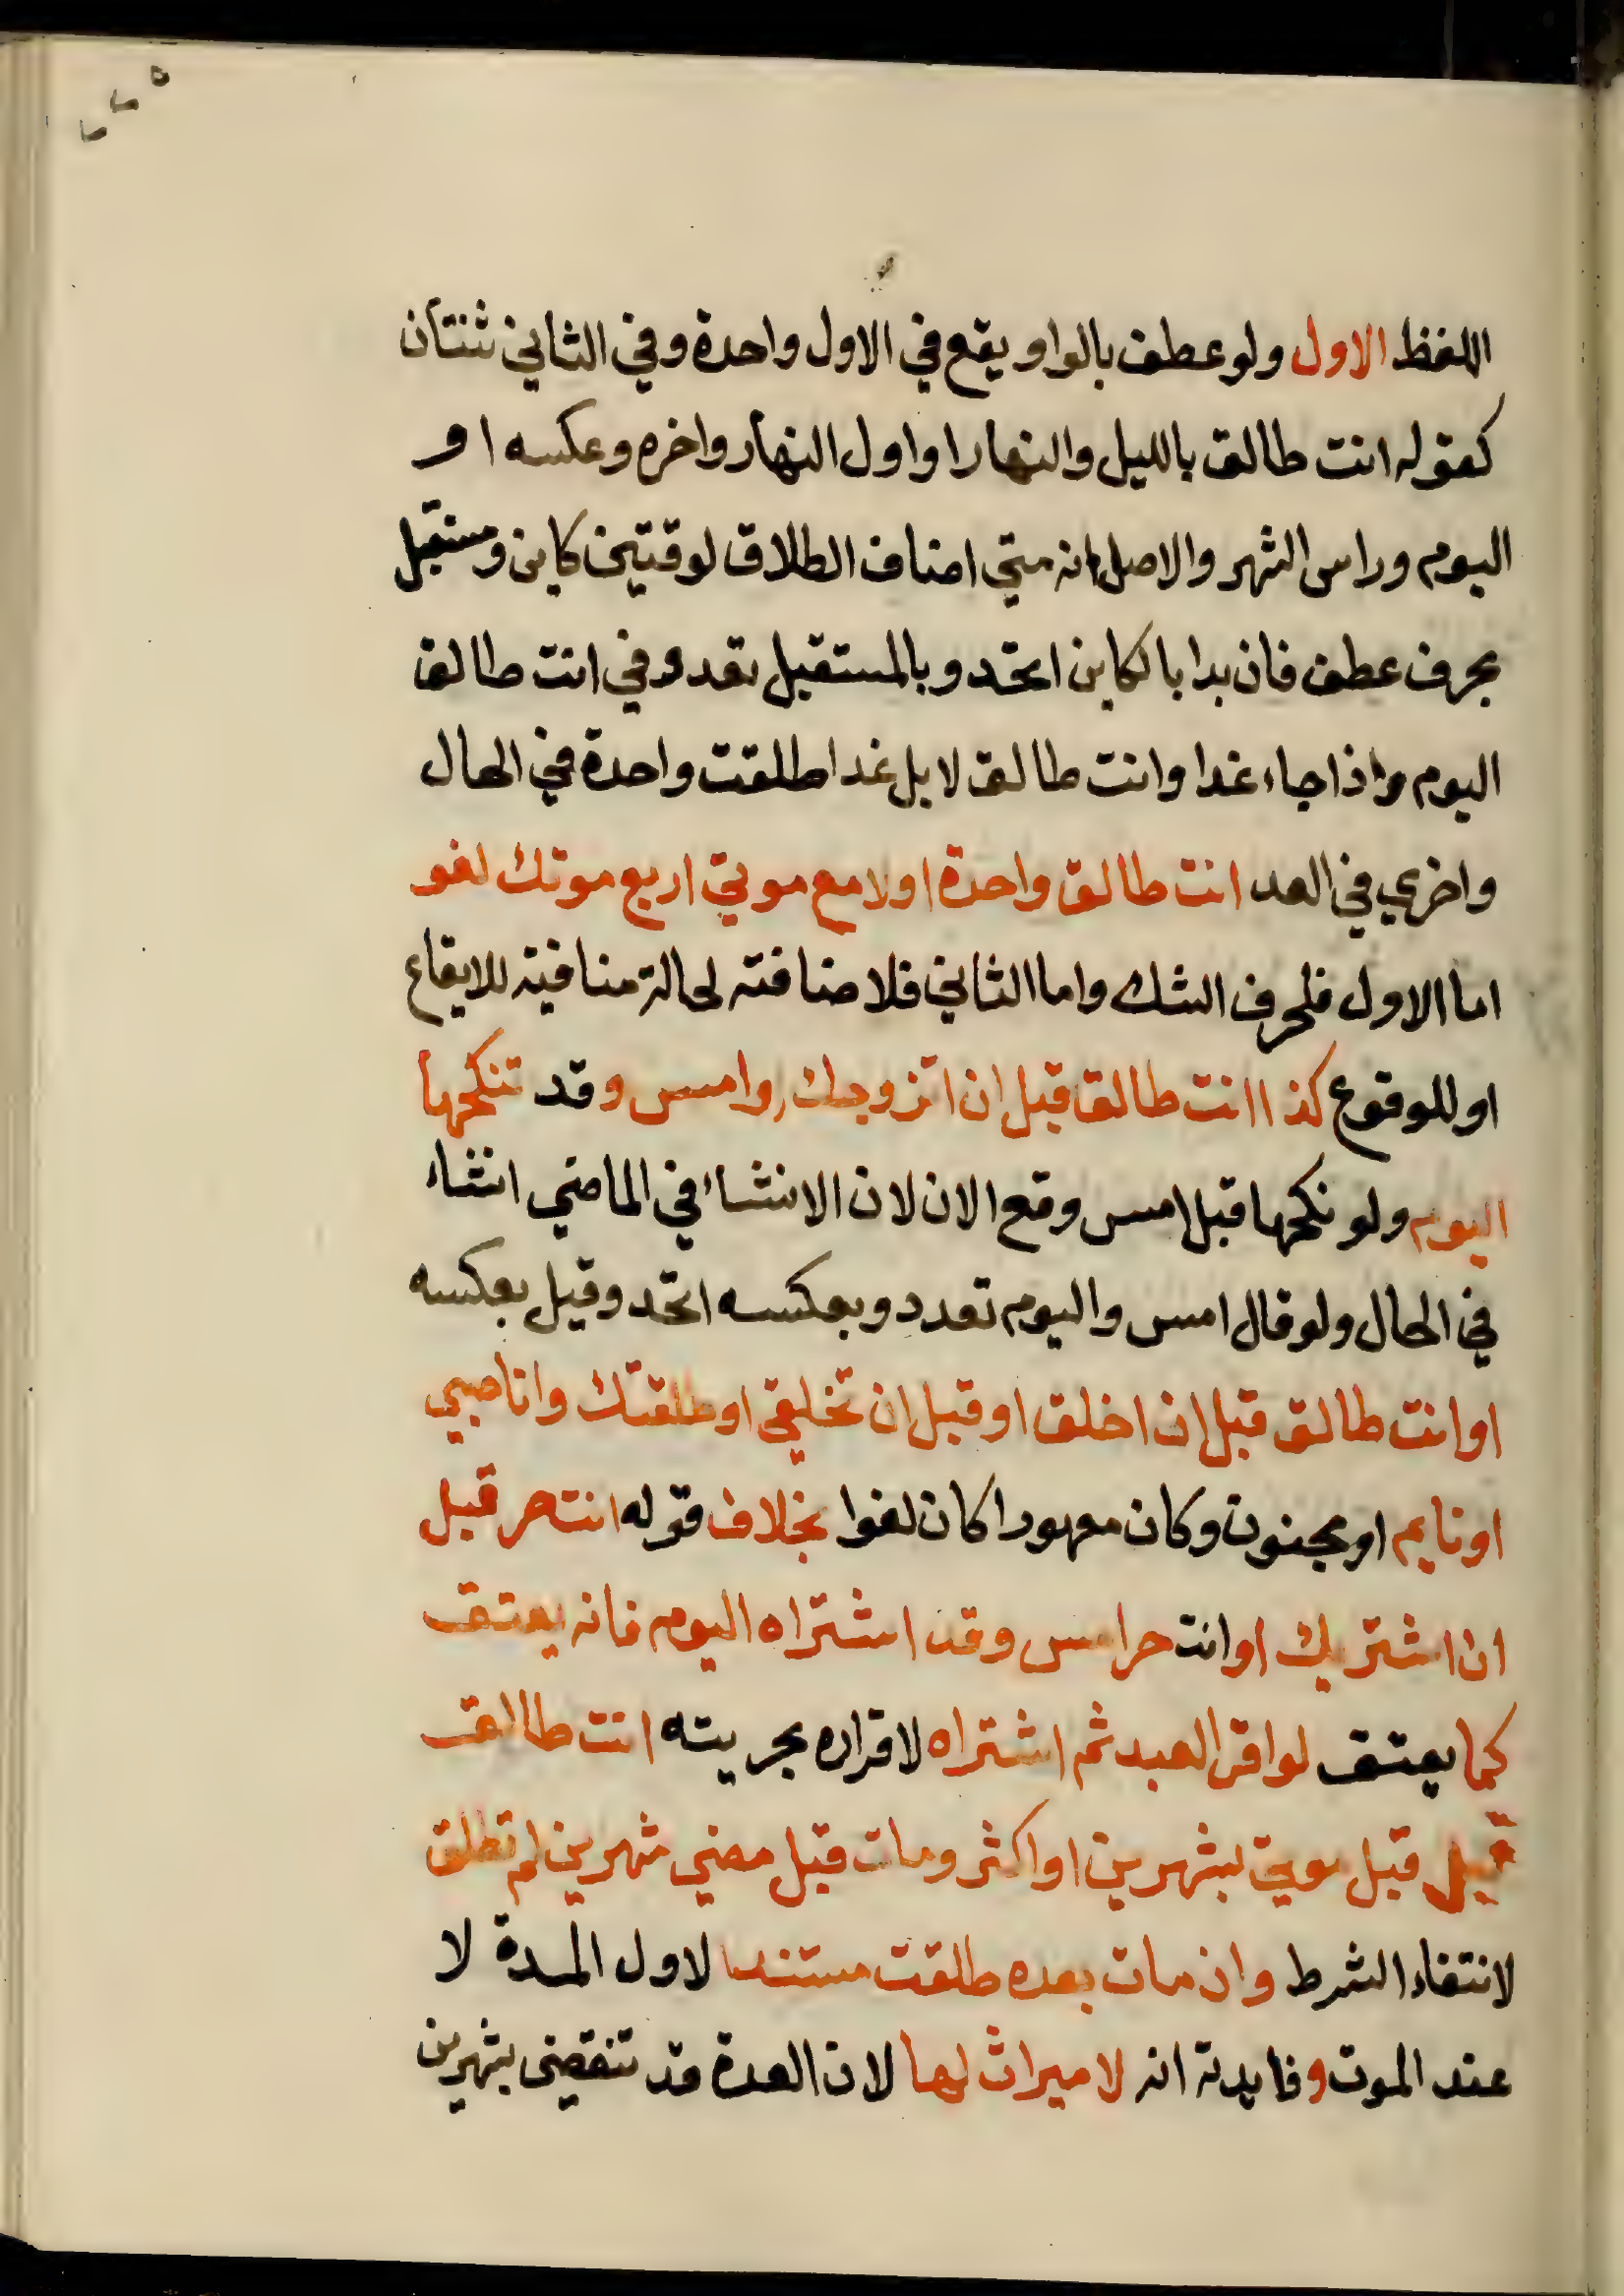 ٢٢٥
اللفظ الاول ولو عطف بالواو يقع في الاول واحدة وفي الثاني ثنتان
كقوله انت طالق بالليل والنهار او اول النهار واخره وعكسه او
اليوم وراس الشهر والاصل انه متي اضاف الطلاق لوقتين كاين ومستقبل
بحرف عطف فان بدا بالكاين اتحد وبالمستقبل تعدد وفي انت طالق
اليوم واذا جاء غدا وانت طالق لا بل غدا طلقت واحدة في الحال
واخري في الغد انت طالق واحدة اولا مع موتي او مع موتك لغو
اما الاول فلحرف الشك واما الثاني فلاضافته لحالة منافية للايقاع
او للوقوع كذا انت طالق قبل ان اتزوجك او امس وقد تنكحها
اليوم ولو نكحها قبل امس وقع الان لان الانشاء في الماضي انشاء
في الحال ولو قال امس واليوم تعدد وبعكسه اتحد وقيل بعكسه
او انت طالق قبل ان اخلق او قبل ان تخلقي او طلقتك وانا صبي
او نايم او مجنون وكان معهودا كان لغوا بخلاف قوله انت حر قبل
ان اشتريك او انت حر امس وقد اشتراه اليوم فانه يعتق
كما يعتق لو اقر العبد ثم اشتراه لاقراره بحريته انت طالق
قبل قبل موتي بشهرين او اكثر ومات قبل مضي شهرين لم تطلق
لانتفاء الشرط وان مات بعده طلقت مستندا لاول المدة لا
عند الموت وفايدته انه لا ميراث لها لان العدة قد تنقضي بشهرين